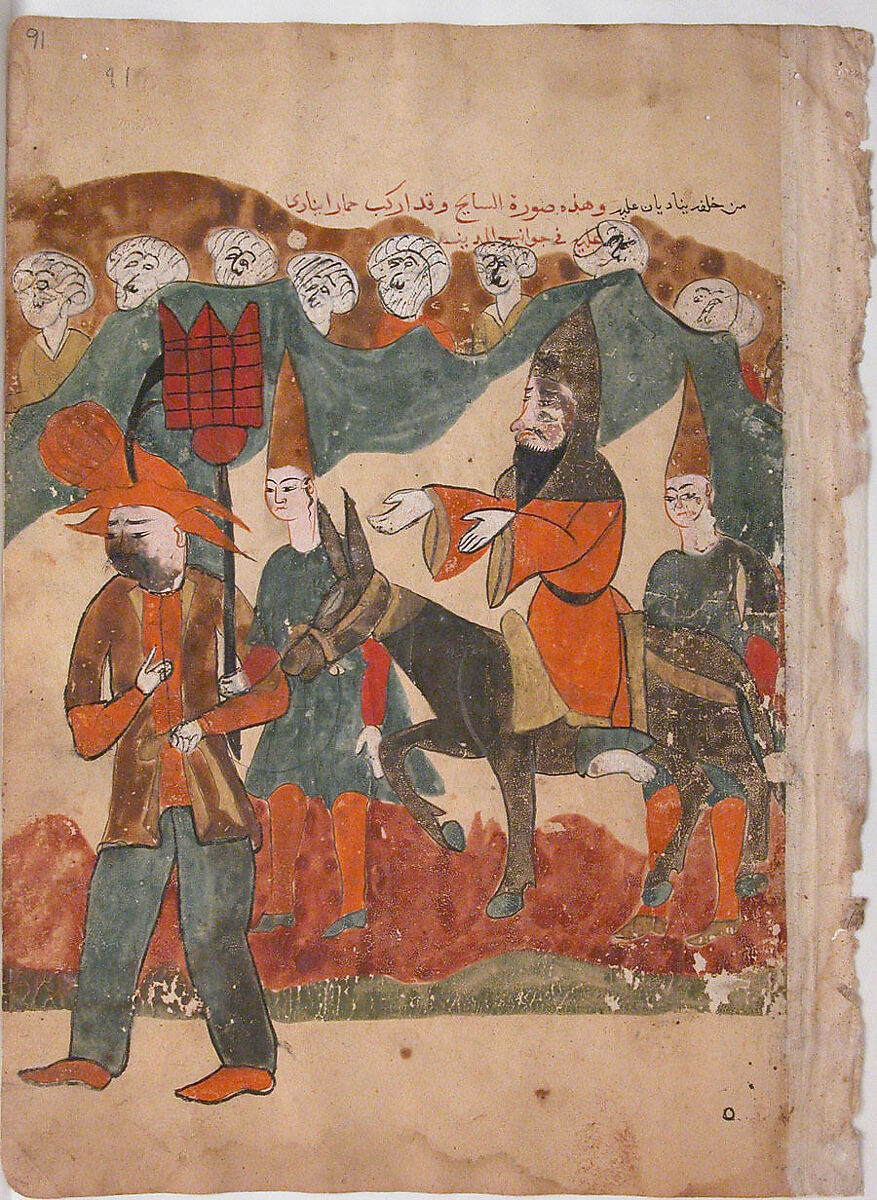 91
91
من خلفه يناديان عليه وهذه صورة السايح وقد اركب حمارا ينادى
عليه في جوانب المدينة
٥